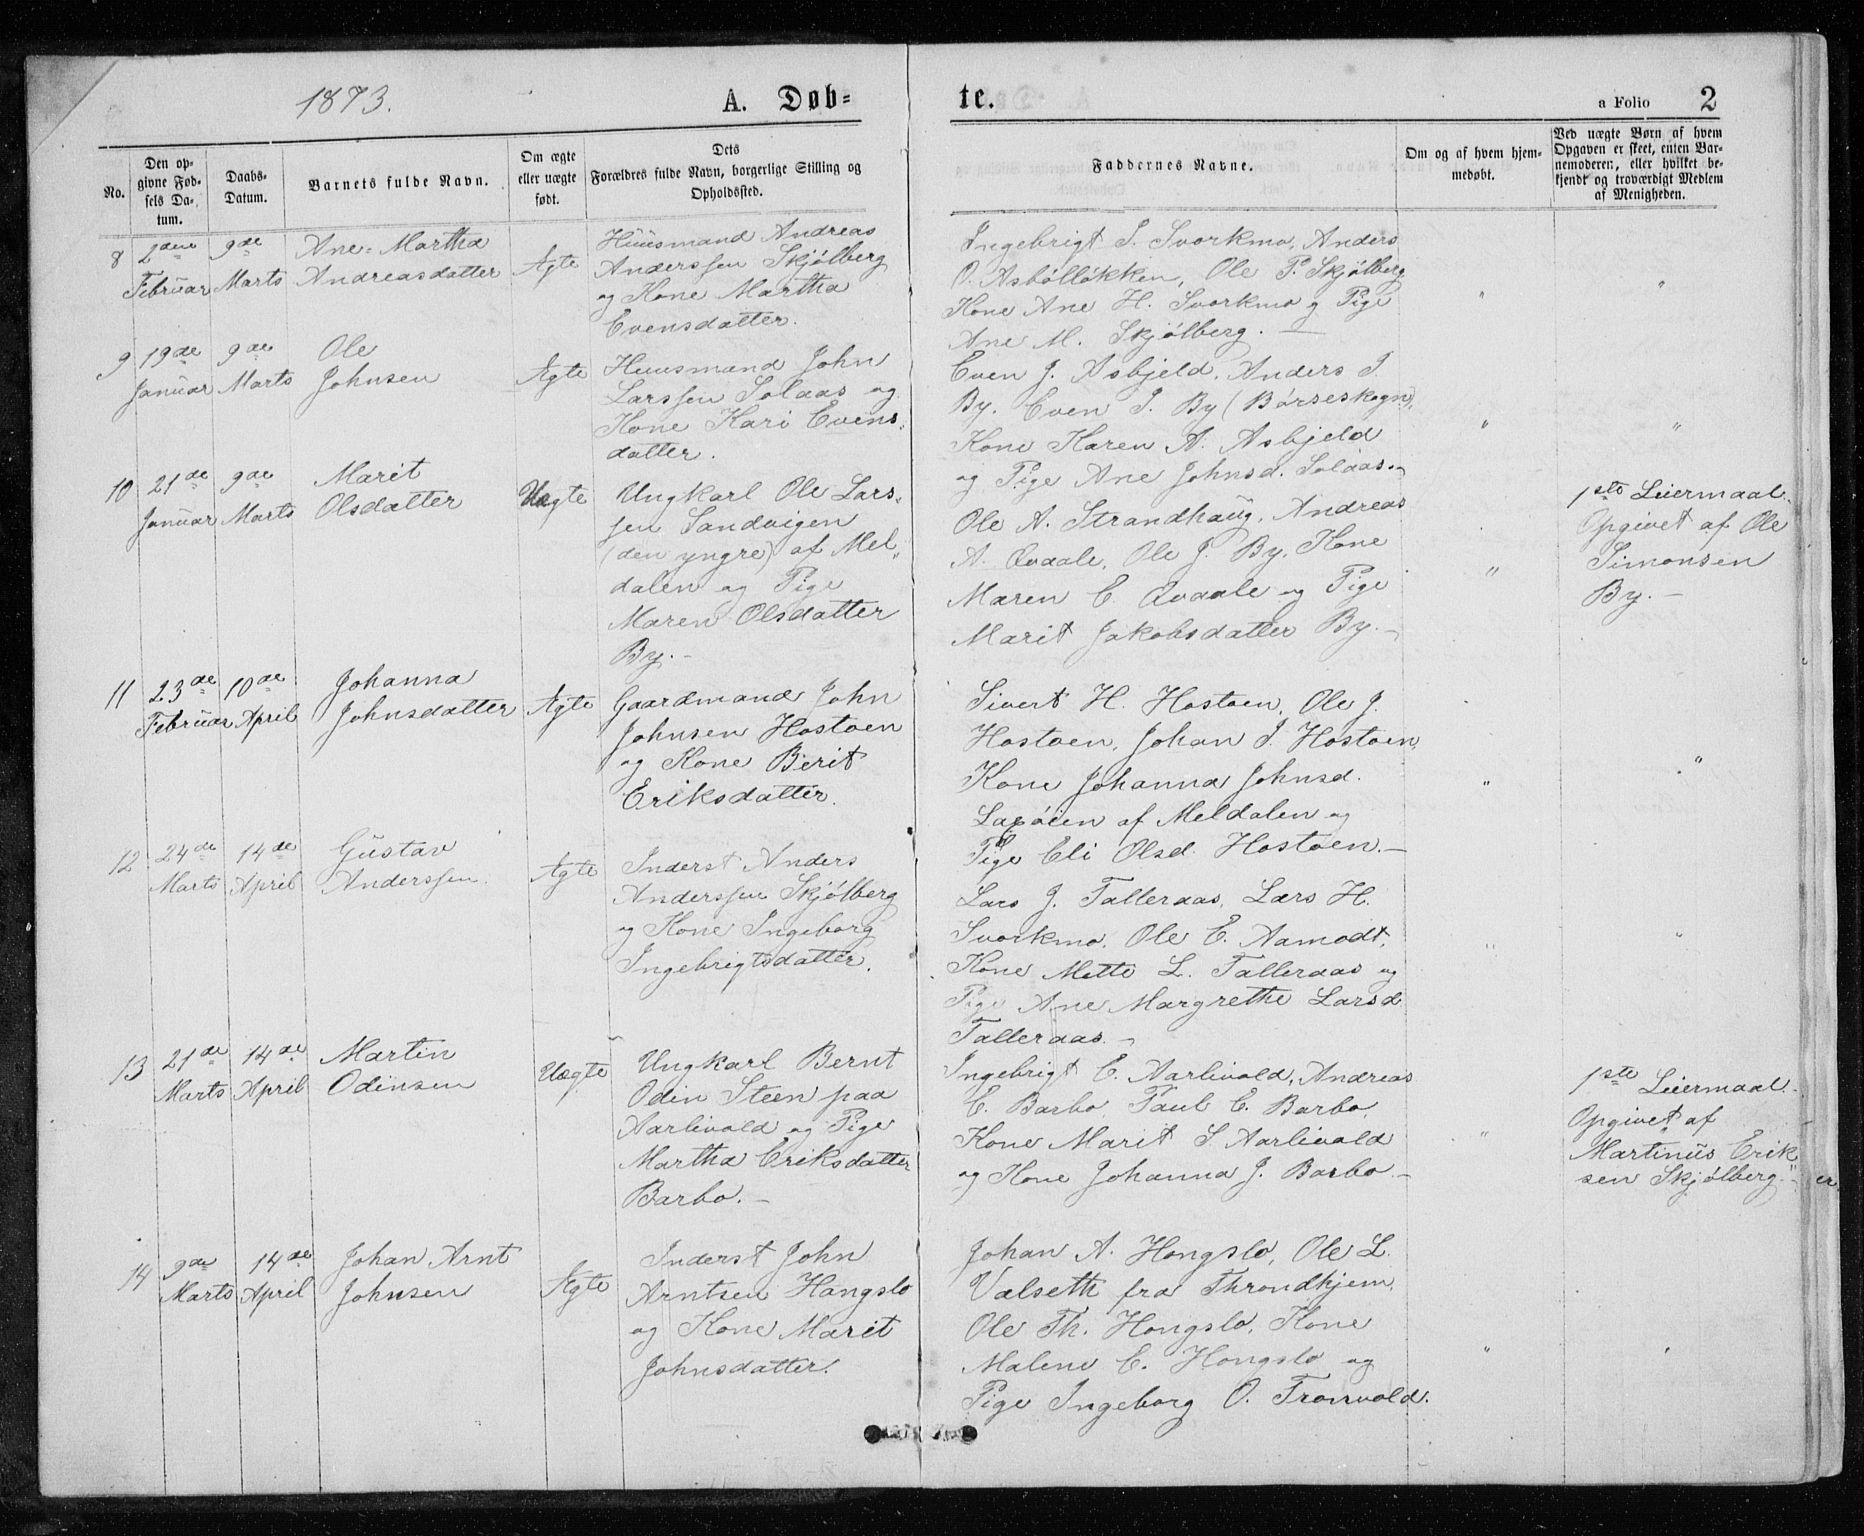 1873.
A. Døb=
te.
a Folio 2
No.
Den op-
givne Fød-
sels Da-
tum.
Daabs-
Datum.
Barnets fulde Navn.
Om ægte
eller uægte
født.
Dets
Forældres fulde Navn, borgerlige Stilling og
Opholdssted.
Faddernes Navne.
Om og af hvem hjem-
medøbt.
Ved uægte Børn af hvem
Opgaven er skeet, enten Bar-
nemoderen, eller hvilket be-
kjendt og troværdigt Medlem
af Menigheden.
8
2den
Februar
9de
Marts
Ane-Martha
Andreasdatter
Ægte
Huusmand Andreas
Anderssen Skjølberg
og Kone Martha
Evensdatter.
Ingebrigt I. Svorkmo, Anders
O. Asbølløkken, Ole P. Skjølberg
Kone Ane H. Svorkmo og Pige
Ane M. Skjølberg. —
"
"
9
19de
Januar
9de
Marts
Ole
Johnsen
Ægte
Huusmand John
Larssen Solaas og
Kone Kari Evens-
datter.
Even J. Asbjeld, Anders I.
By, Even I. By (Børseskogn),
Kone Karen A. Asbjeld
og Pige Ane Johnsd. Solaas. —
"
"
10
21de
Januar
9de
Marts
Marit
Olsdatter
Uægte
Ungkarl Ole Lars-
sen Sandvigen
(den yngre) af Mel-
dalen og Pige
Maren Olsdatter
By. —
Ole A. Strandhaug, Andreas
A. Qvaale, Ole J. By, Kone
Maren E. Qvaale og Pige
Marit Jakobsdatter By. —
"
1ste Leiermaal.
Opgivet af Ole
Simonsen
By. —
11
23de
Februar
10de
April
Johanna
Johnsdatter
Ægte
Gaardmand John
Johnsen Hostoen
og Kone Berit
Eriksdatter.
Sivert H. Hostoen, Ole J.
Hostoen, Johan J. Hostoen,
Kone Johanna Johnsd.
Laxøien af Meldalen og
Pige Eli Olsd. Hostoen. —
"
"
12
24de
Marts
14de
April
Gustav
Anderssen
Ægte
Inderst Anders
Anderssen Skjølberg
og Kone Ingeborg
Ingebrigtsdatter.
Lars J. Talleraas, Lars H.
Svorkmo, Ole E. Aamodt,
Kone Mette L. Talleraas og
Pige Ane Margrethe Larsd
Talleraas. —
"
"
13
21de
Marts
14de
April
Martin
Odinsen
Uægte
Ungkarl Bernt
Odin Steen paa
Aarlivold og Pige
Martha Eriksdatter
Barbo. —
Ingebrigt E. Aarlivold, Andreas
E. Barbo, Paul E. Barbo,
Kone Marit S. Aarlivold
og Kone Johanna J. Barbo. —
"
1ste Leiermaal.
Opgivet af
Martinus Erik
sen Skjølberg. —
14
9de
Marts
14de
April
Johan Arnt
Johnsen
Ægte
Inderst John
Arntsen Hongslo
og Kone Marit
Johnsdatter.
Johan A. Hongslo, Ole L.
Valseth fra Throndhjem,
Ole Th. Hongslo, Kone
Malene E. Hongslo og
Pige Ingeborg O. Tronvold.
"